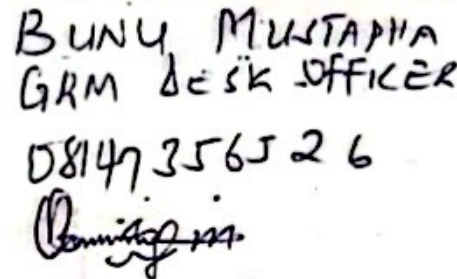 BUNU MUSTAPHA
GRM DESK OFFICER
08147356526